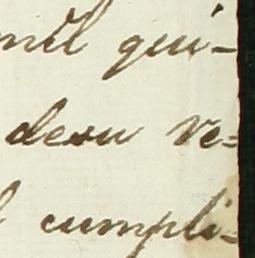 mil qui-
desu ve=
cumpli=